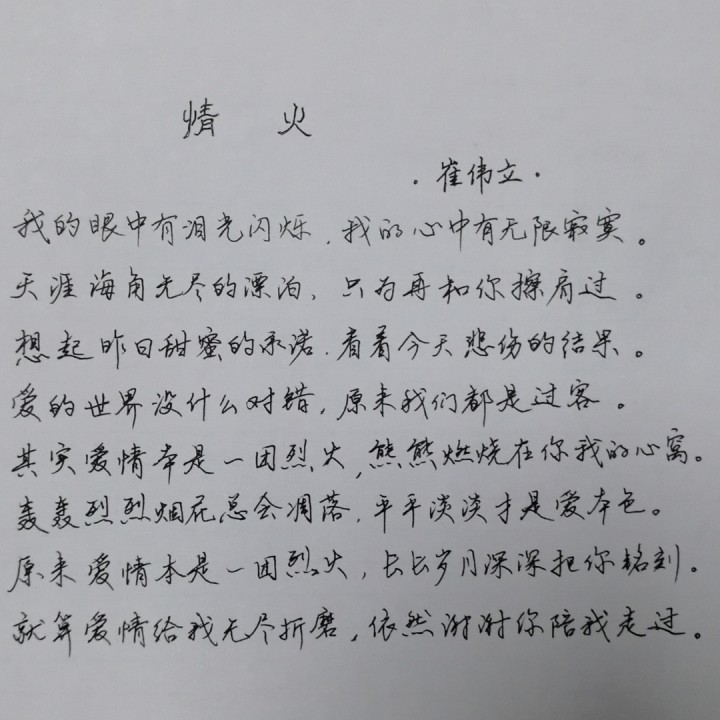 情 火
·崔伟立·
我的眼中有泪光闪烁,我的心中有无限寂寞。
天涯海角无尽的漂泊,只为再和你擦肩过。
想起昨日甜蜜的承诺,看着今天悲伤的结果。
爱的世界没什么对错,原来我们都是过客。
其实爱情本是一团烈火,熊熊燃烧在你我的心窝。
轰轰烈烈烟花总会凋落,平平淡淡才是爱本色。
原来爱情本是一团烈火,长长岁月深深把你铭刻。
就算爱情给我无尽折磨,依然谢谢你陪我走过。